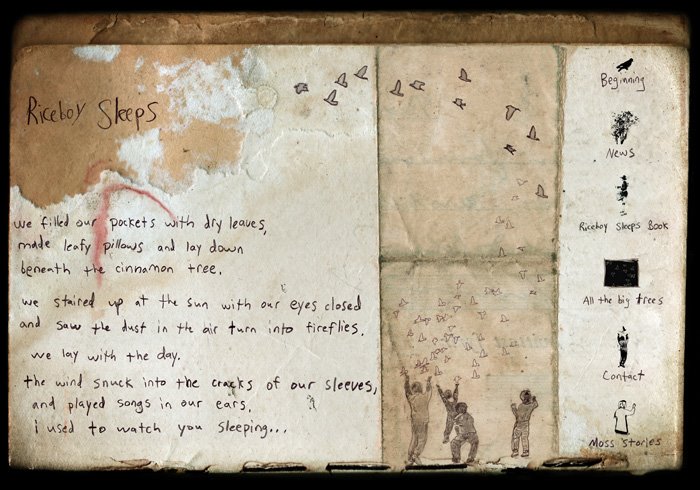 Riceboy Sleeps
we filled our pockets with dry leaves,
made leafy pillows and lay down
beneath the cinnamon tree.
we staired up at the sun with our eyes closed
and saw the dust in the air turn into fireflies.
we lay with the day.
the wind snuck into the cracks of our sleeves,
and played songs in our ears.
i used to watch you sleeping...
Beginning
News
Riceboy Sleeps Book
All the big trees
Contact
Moss stories